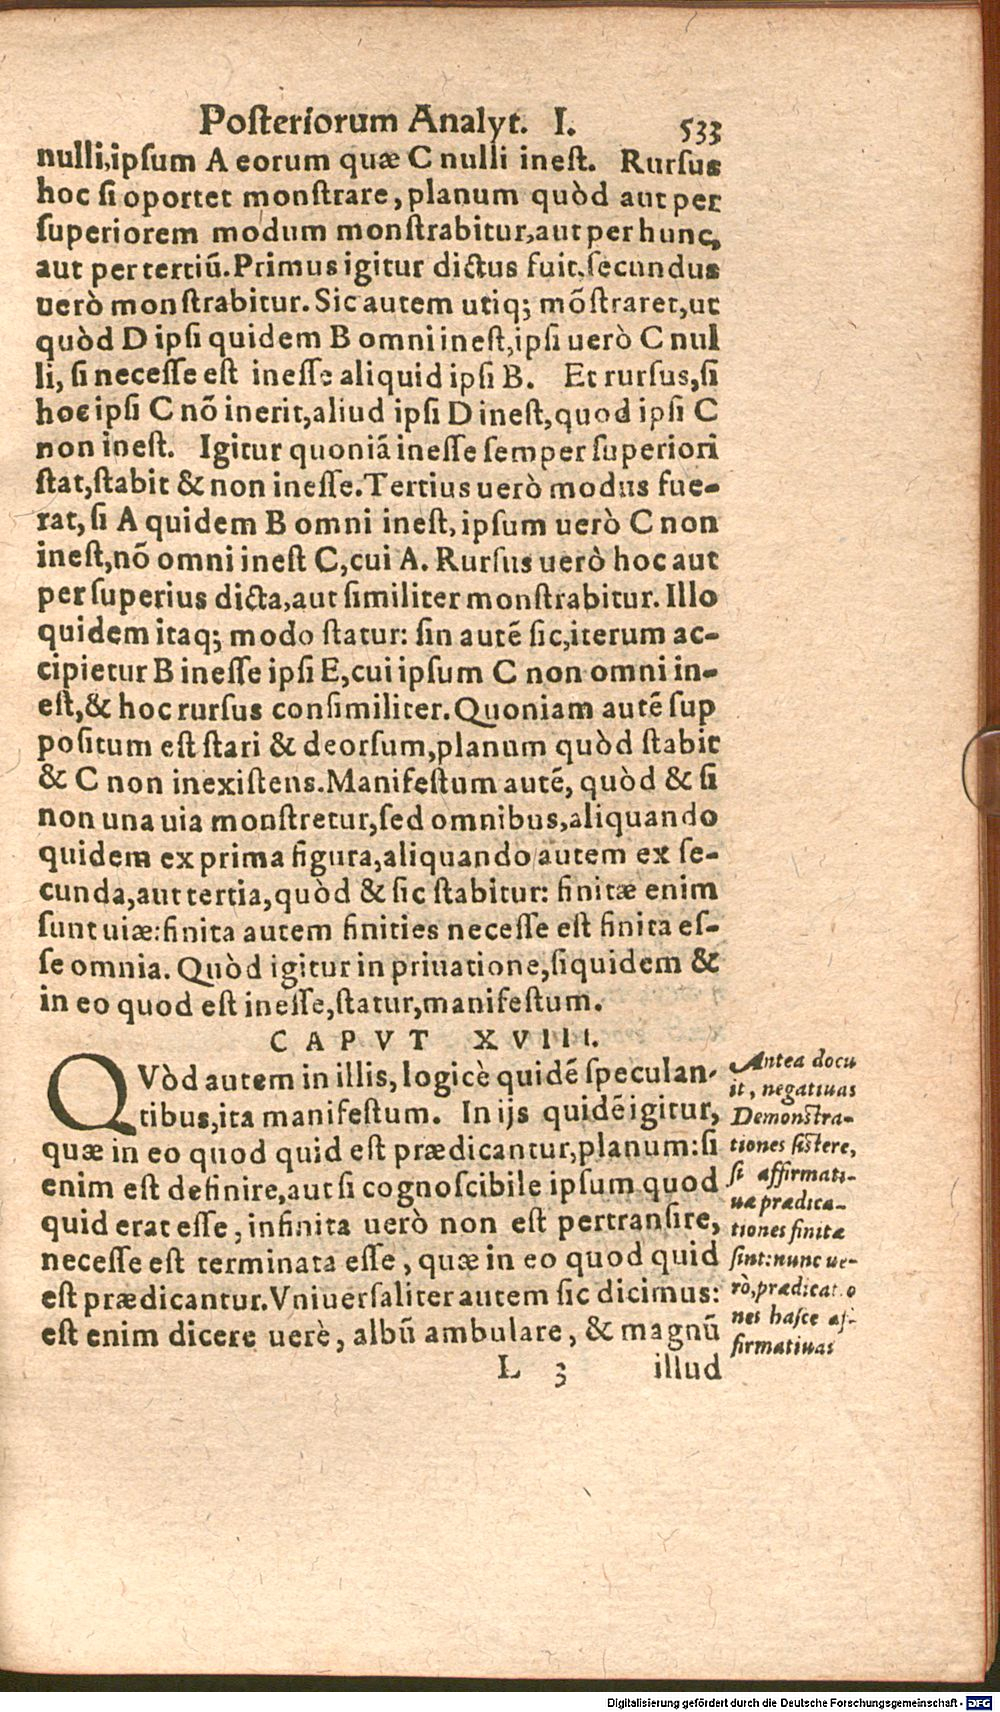 Poſteriorum Analyt. I. 533
nulli, ipſum A eorum quæ C nulli ineſt. Rurſus
hoc ſi oportet monſtrare, planum quòd aut per
ſuperiorem modum monſtrabitur, aut per hunc,
aut per tertiũ. Primus igitur dictus fuit, ſecundus
uerò monſtrabitur. Sic autem utiq; mõſtraret, ut
quòd D ipſi quidem B omni ineſt, ipſi uerò C nul
li, ſi neceſſe eſt ineſſe aliquid ipſi B. Et rurſus, ſi
hoc ipſi C nõ inerit, aliud ipſi D ineſt, quod ipſi C
non ineſt. Igitur quoniã ineſſe ſemper ſuperiori
ſtat, ſtabit & non ineſſe. Tertius uerò modus fue-
rat, ſi A quidem B omni ineſt, ipſum uerò C non
ineſt, nõ omni ineſt C, cui A. Rurſus uerò hoc aut
per ſuperius dicta, aut ſimiliter monſtrabitur. Illo
quidem itaq; modo ſtatur: ſin autẽ ſic, iterum ac-
cipietur B ineſſe ipſi E, cui ipſum C non omni in-
eſt, & hoc rurſus conſimiliter. Quoniam autẽ ſup
poſitum eſt ſtari & deorſum, planum quòd ſtabit
& C non inexiſtens. Manifeſtum autẽ, quòd & ſi
non una uia monſtretur, ſed omnibus, aliquando
quidem ex prima figura, aliquando autem ex ſe-
cunda, aut tertia, quòd & ſic ſtabitur: finitæ enim
ſunt uiæ: finita autem finities neceſſe eſt finita eſ-
ſe omnia. Quòd igitur in priuatione, ſiquidem &
in eo quod eſt ineſſe, ſtatur, manifeſtum.
CAPVT XVIII.
QVòd autem in illis, logicè quidẽ ſpeculan-
tibus, ita manifeſtum. In ijs quidẽ igitur,
quæ in eo quod quid eſt prædicantur, planum: ſi
enim eſt definire, aut ſi cognoſcibile ipſum quod
quid erat eſſe, infinita uerò non eſt pertranſire,
neceſſe eſt terminata eſſe, quæ in eo quod quid
eſt prædicantur. Vniuerſaliter autem ſic dicimus:
eſt enim dicere uerè, albũ ambulare, & magnũ
L 3 illud
Antea docu
it, negatiuas
Demonſtra-
tiones ſiſtere,
ſi affirmati-
uæ prædica-
tiones finitæ
ſint: nunc ue-
rò, prædicatio
nes haſce af-
firmatiuas
Digitalisierung gefördert durch die Deutsche Forschungsgemeinschaft - DFG